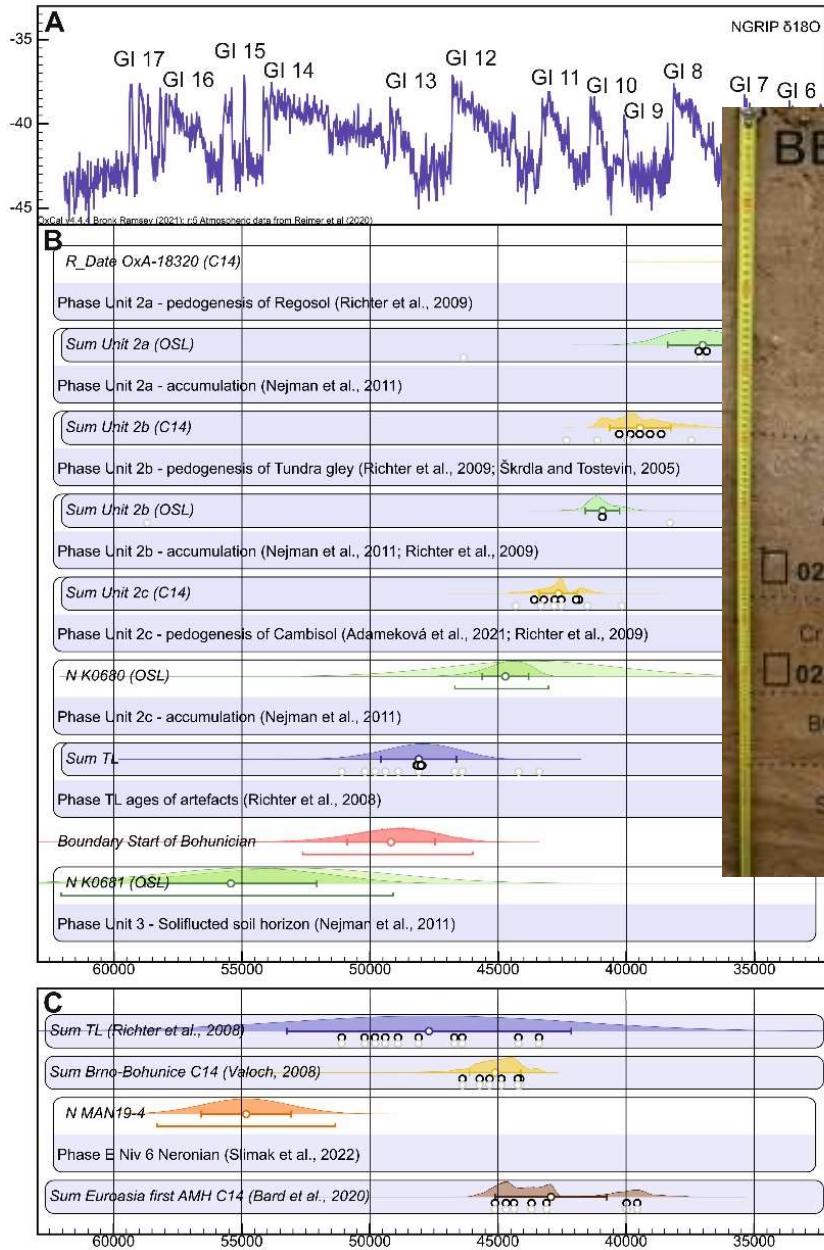 A
NGRIP δ18O
-35
-40
-45
GI 17
GI 16
GI 15
GI 14
GI 13
GI 12
GI 11
GI 10
GI 9
GI 8
GI 7
GI 6
OxCal v4.4.4 Bronk Ramsey (2021); r:5 Atmospheric data from Reimer et al (2020)
B
R_Date OxA-18320 (C14)
Phase Unit 2a - pedogenesis of Regosol (Richter et al., 2009)
Sum Unit 2a (OSL)
Phase Unit 2a - accumulation (Nejman et al., 2011)
Sum Unit 2b (C14)
Phase Unit 2b - pedogenesis of Tundra gley (Richter et al., 2009; Škrdla and Tostevin, 2005)
Sum Unit 2b (OSL)
Phase Unit 2b - accumulation (Nejman et al., 2011; Richter et al., 2009)
Sum Unit 2c (C14)
Phase Unit 2c - pedogenesis of Cambisol (Adameková et al., 2021; Richter et al., 2009)
N K0680 (OSL)
Phase Unit 2c - accumulation (Nejman et al., 2011)
Sum TL
Phase TL ages of artefacts (Richter et al., 2008)
Boundary Start of Bohunician
N K0681 (OSL)
Phase Unit 3 - Soliflucted soil horizon (Nejman et al., 2011)
60000 55000 50000 45000 40000 35000
C
Sum TL (Richter et al., 2008)
Sum Brno-Bohunice C14 (Valoch, 2008)
N MAN19-4
Phase E Niv 6 Neronian (Slimak et al., 2022)
Sum Euroasia first AMH C14 (Bard et al., 2020)
60000 55000 50000 45000 40000 35000
02
Cr
02